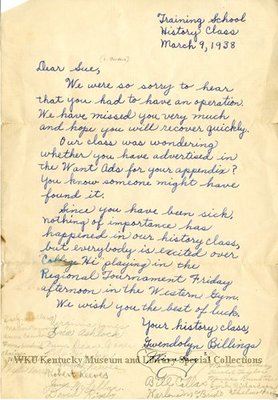 Training School
History Class
March 9, 1938
Dear Sue,
We were so sorry to hear
that you had to have an operation.
We have missed you very much
and hope you will recover quickly.
Our class was wondering
whether you have advertised in
the Want Ads for your appendix?
You know someone might have
found it.
Since you have been sick,
nothing of importance has
happened in our history class,
but everybody is excited over
College Hi playing in the
Regional Tournament Friday
afternoon in the Western Gym.
We wish you the best of luck.
Your history class,
Gwendolyn Billings
WKU Kentucky Museum and Library Special Collections
Robert Reeves
Bill